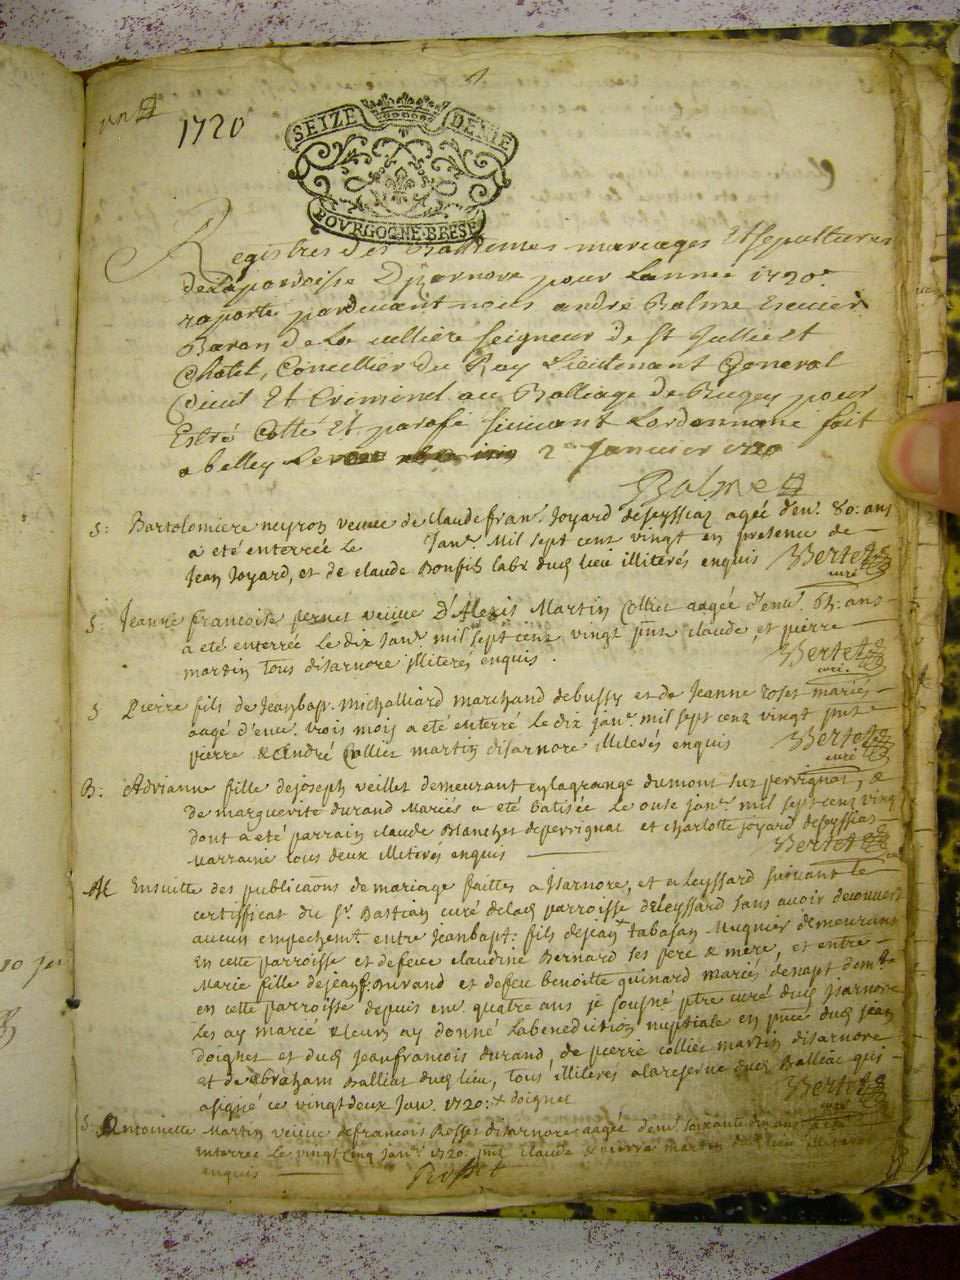 1720
SEIZE DENIE
BOVRGOGNE·BRESE
Registres des Baptemes mariages Et sepultures
de La paroisse Dyzernore pour Lannee 1720
raporté pardevant nous andré Balme Escuier
Baron de La seigneur de St Jullie Et
Chatel, Conseillier du Roy Lieutenant General
Civil Et Criminel au Balliage de Bugey pour
Estre Cotté Et parafé suivant Lordonnance fait
a belley Le 2e Janvier 1720
Balme
S: Bartolomiere neyron veuve de Claude fran. Joyard deseyssiaz agée d'env. 80: ans
a été enterrée le Janv. Mil sept cent vingt en presence de
Jean Joyard, et de claude Bonfis labr dud lieu illiterés enquis Bertet
curé
S: Jeanne francoise pernet veuve D'Alexis Martin Colliet aagée d'env. 65: ans
a été enterrée le dix Janv. mil sept cent vingt pnts claude, et pierre
martin tous disarnore illiterés enquis. Bertet
curé
S Pierre fils de Jeanbap. Michalliard marchand debussy et de Jeanne roset mariés
aagé d'env. trois mois a été enterré le dix janv. mil sept cent vingt pnts
pierre & André Collier martin disarnore illiterés enquis Bertet
curé
B: Adrianne fille dejoseph veillet demeurant en lagrange dumont sur pervignat, &
de marguerite durand Mariés a été batisée le onse janv. mil sept cent vingt
dont a été parrain claude Blanchet depervignat et charlotte joyard deseyssias
Marraine tous deux illiterés enquis Bertet
M Ensuitte des publications de mariage faittes a Isarnore, et a leyssard suivant le
certifficat du Sr. Bastian curé delad parroisse deleyssard sans avoir decouvert
aucun empechemt. entre Jeanbapt: fils dejean Mugnier demeurant
en cette parroisse et defeue claudine Bernard ses pere & mere, et entre
Marie fille dejean Durand et defeu benoitte quinard mariés denapt demte
en cette parroisse depuis env. quatre ans je sousné ptre curé dud Isarnore
les ay marié & leur ay donné labenediction nuptiale en pnce dud jean
doignet et dud jeanfrancois durand, de pierre collier martin disarnore
et de abraham Balliat dud lieu, tous illiterés alareserve dud Balliat qui
a signé ce vingt deux Janv. 1720: & doignet Bertet
curé
S: Antoinette Martin veuve defrancois Rosset disarnore aagée d'env. soixante dix ans a été
enterrée le vingt cinq janv. 1720. pnts claude & pierre martin dud lieu illiterés
enquis Rosset